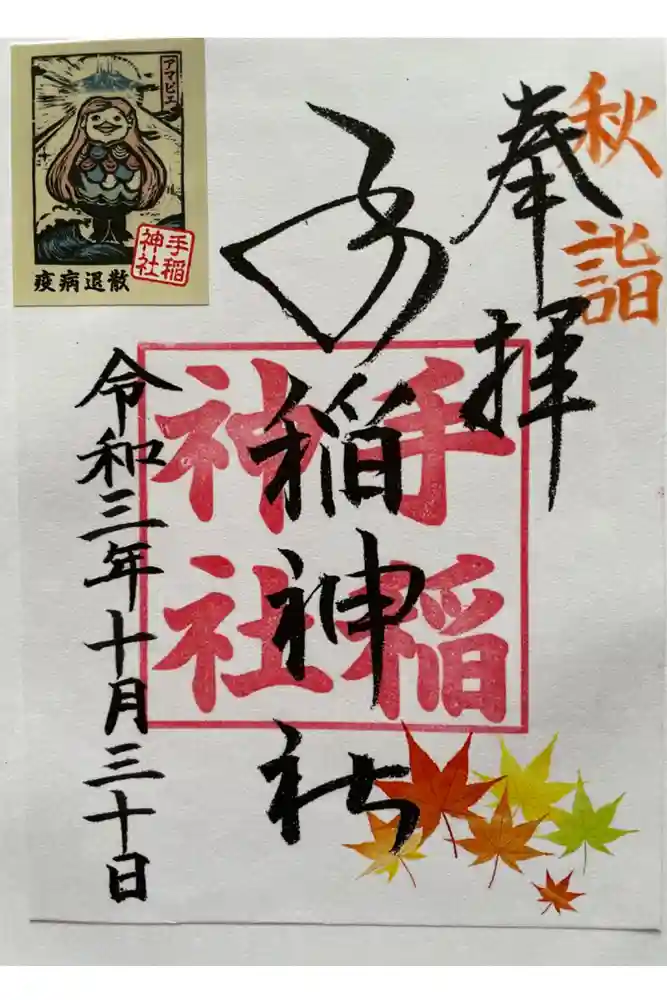 秋詣
奉拝
手稲神社
手稲
神社
令和三年十月三十日
アマビエ
手稲
神社
疫病退散